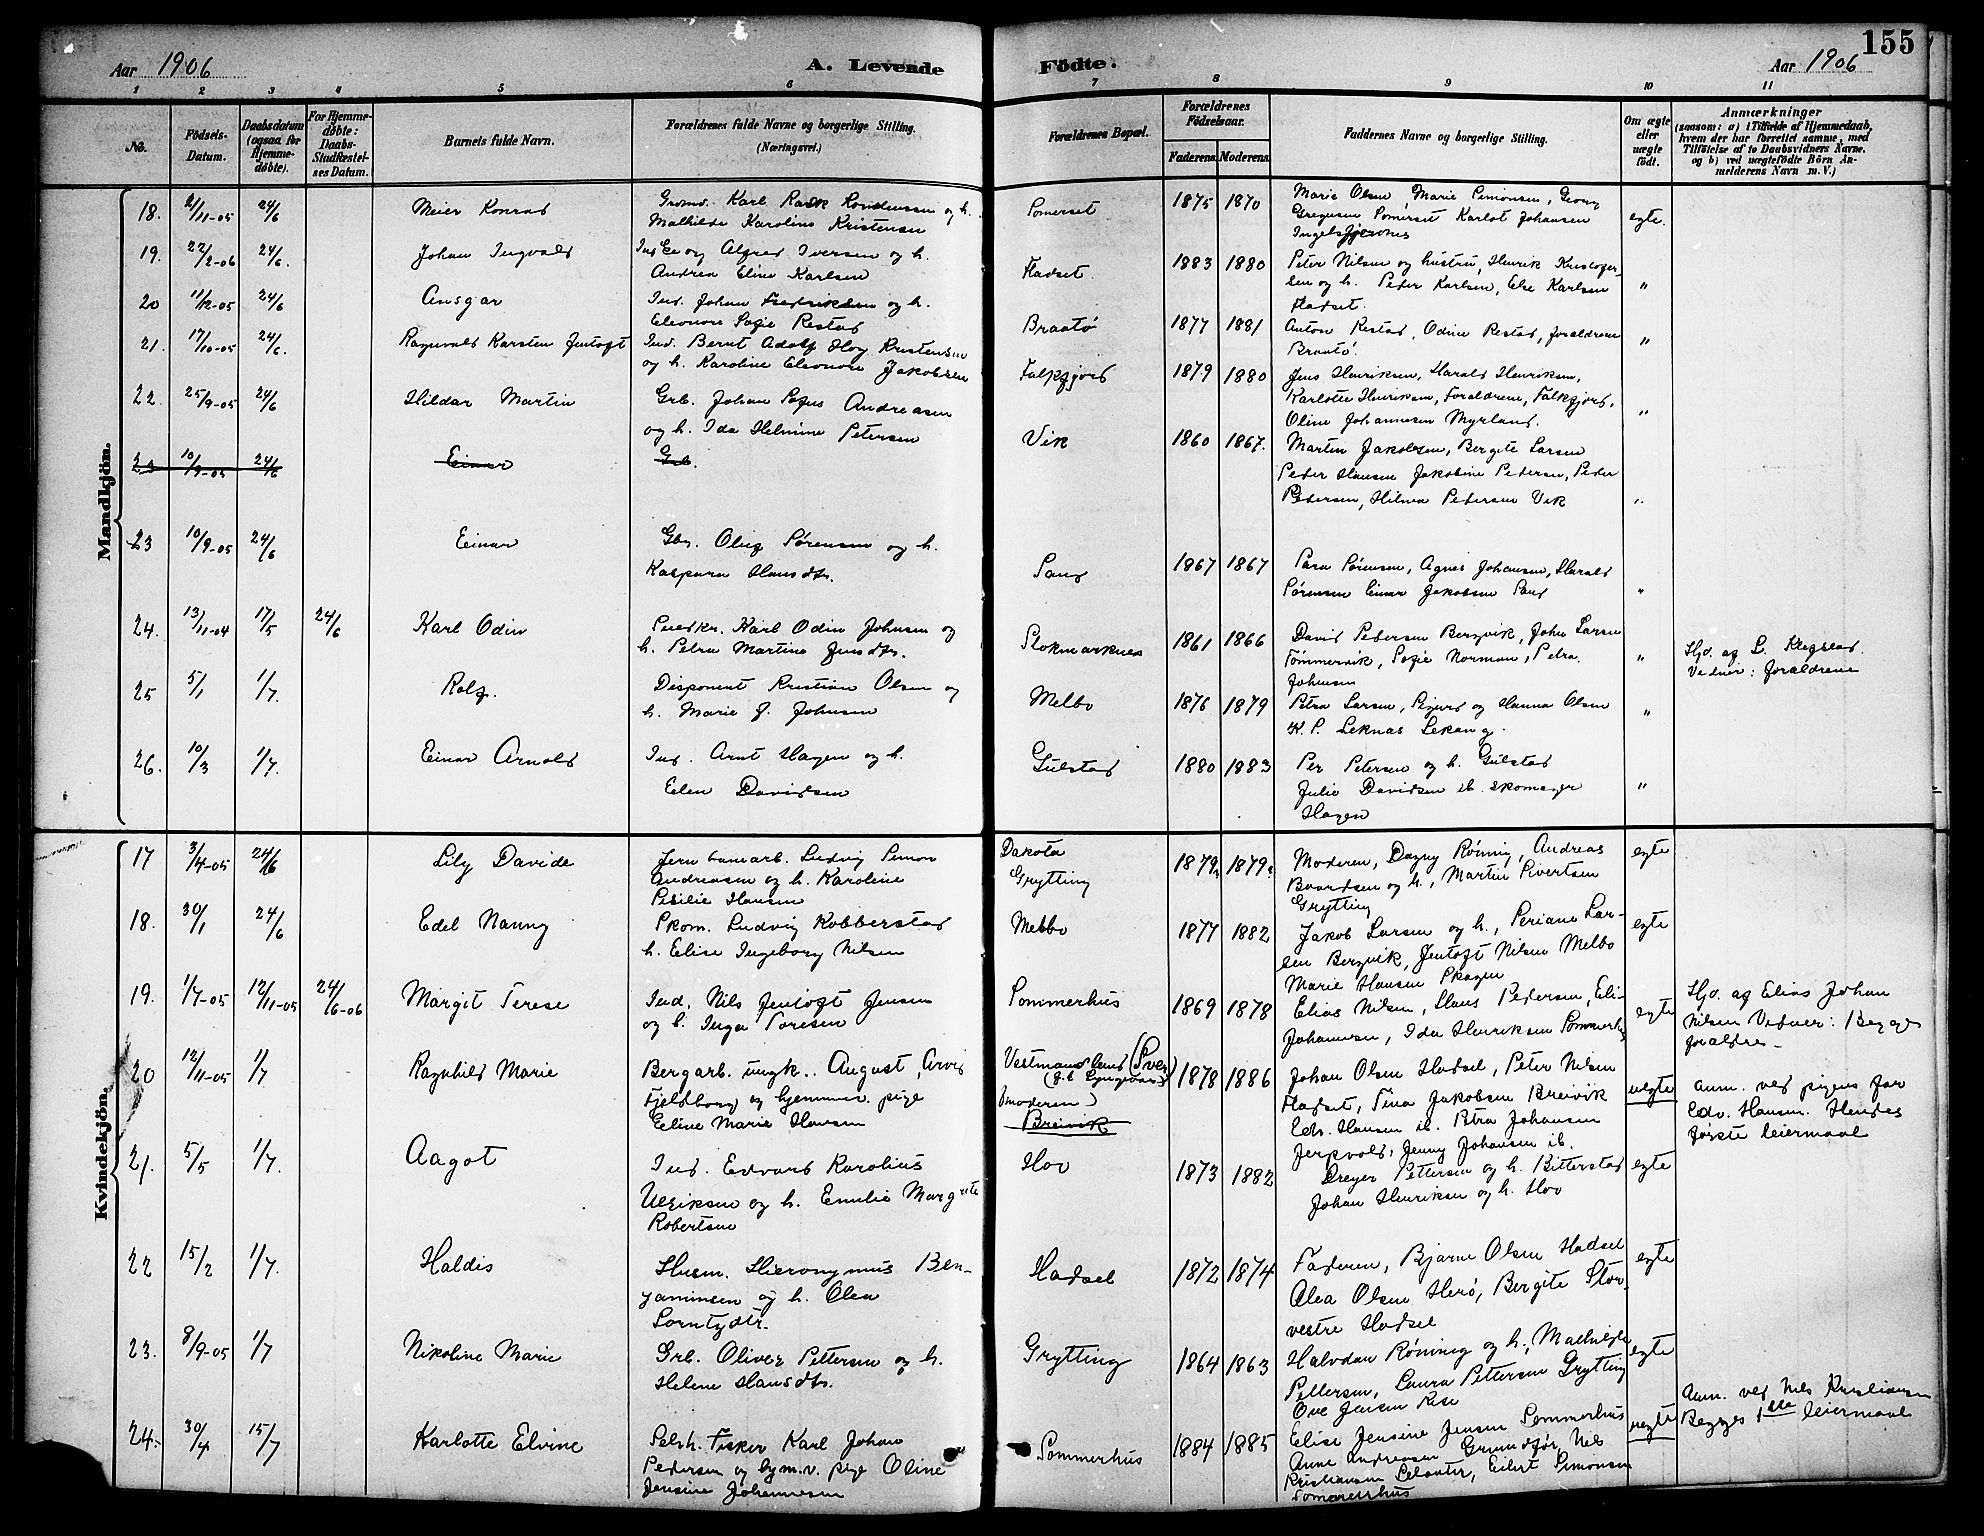 155
Aar 1906
A. Levende Födte.
Aar 1906
1 2 3 4 5 6 7 8 9 10 11
No.
Födsels-Datum.
Daabsdatum (ogsaa for Hjemme-døbte).
For Hjemme-døbte: Daabs-Stadfæstel-ses Datum.
Barnets fulde Navn.
Forældrenes fulde Navne og borgerlige Stilling.
(Næringsvei.)
Forældrenes Bopæl.
Forældrenes Födselsaar.
Faderens Moderens
Faddernes Navne og borgerlige Stilling.
Om ægte eller uægte födt.
Anmærkninger
(saasom: a) i Tilfælde af Hjemmedaab,
hvem der har forrettet samme, med
Tilföielse af to Daabsvidners Navne,
og b) ved uægtefödte Börn An-
melderens Navn m. V.)
Mandkjön.
18. 2/11-05 24/6 Meier Konrad
Karl Rask og h.
Mathilde Karoline Kristensen
Somerset 1875 1870
Marie Olsen, Marie Simonsen, Georg
Gregusen Somerset Karlot Johansen
egte.
19. 22/2-06 24/6. Johan Ingvald
Alfred Iversen og h.
Andrea Eline Karlsen
Fladset. 1883 1880
Peter Nilsen og hustru, Henrik Kristofer-
sen og h. Peder Karlsen, Else Karlsen
Fladset.
"
20 11/12-05 24/6 Ansgar
Ind. Johan Fredriksen og h.
Eleonore Sofie Restad
Braatø 1877 1881
Anton Restad, Odine Restad, foraldrene
Braatø.
"
21. 17/10-05 24/6. Ragnvald Karsten Jentoft
Ind. Bernt Adolf Hoy Kristensen
og h. Karoline Eleonore Jakobsen
Falkfjord 1879 1880
Jens Henriksen, Harald Henriksen,
Karlotte Henriksen, Foraldrene, Falkfjord,
Oline Johannesen Myrland.
"
22. 25/9-05 24/6 Hildar Martin
Grb. Johan Sofus Andreasen
og h. Ida Helmine Petersen
Vik 1860 1867.
Martin Jakobsen, Bergite Larsen
Peder Hansen Jakobine Pedersen, Peder
Pedersen, Hilma Pedersen Vik
"
23 10/9-05 24/6 Einar Grb.
23 10/9-05 24/6 Einar
Gbr. Oluf Sørensen og h.
Kaspara Hansdtr.
Sand 1867 1867
Sara Sørensen, Agnes Johansen, Harald
Sørensen Einar Jakobsen Sand
"
24. 13/11-04 17/5 24/6 Karl Odin
Karl Odin Johnsen og
h. Petra Martine Jensdtr.
Stokmarknes 1861 1866
David Pedersen Bergvik, John Larsen
Tömmervik, Sofie Norman, Petra
Johnsen
"
Hjd. af L. Klegstad.
Vidner: foraldrene
25 5/1 1/7. Rolf.
Disponent Kristian Olsen og
h. Marie J. Johnsen
Melbo 1876 1879
Petra Larsen, Sigurd og Hanna Olsen
K. P. Leknas Lekang.
"
26. 10/3 1/7. Einar Arnold
Ind. Arnt Hagen og h.
Elen Davidsen
Gulstad 1880 1883
Per Petersen og h. Gulstad
Julie Davidsen ib. skomager
Hagen
"
Kvindekjön.
17 3/4-05 24/6 Lily Davide
Jernbanearb. Ludvig Simon
Andreasen og h. Karoline
Hansen
Dakota
Grytting
1879. 1879.
Moderen, Dagny Rönnig, Andreas
Baardsen og h., Martin Sivertsen
Grytting
egte
18. 30/1 24/6 Edel Nanny
Skom. Ludvig Kobberstad
h. Elise Ingeborg Nilsen
Melbo 1877 1882
Jakob Larsen og h., Periane Lar-
sen Bergvik, Jentoft Nilsen Melbo
Marie Hansen Skagen
egte
19. 1/7-05 12/11-05 24/6-06 Margit Terese
Ind. Nils Jentoft Jensen
og h. Inga Toresen
Sommerhus 1869 1878
Elias Nilsen, Hans Pedersen, Eli-
Johannesen, Ida Henriksen Sommerh
egte
Hjd. af Elias Johan
Nilsen Vidner: Begge
foraldre -
20 12/11-05 1/7 Ragnhild Marie
Bergarb. ungk.. August, Arvid
Fjeldborg og hjemmev. pige
Eeline Marie Hansen
Vestmanland (Sver
moderen)
Breivik
1878 1886
Johan Olsen Hadsel, Peter Nilsen
Fladset, Tina Jakobsen Breivik
Edv. Hansen ib. Petra Johansen
Jerpvold, Jenny Johansen ib.
uegte
anm. ved pigens far
Edv. Hansen. Hendes
første leiermaal
21. 5/5 1/7. Aagot
Ind. Edvard Karolius
Ulriksen og h. Emilie Margrete
Robertsen
Hov 1873 1882
Dreyer Pettersen og h. Bitterstad
Johan Henriksen og h. Hov
egte
22 15/2 1/7. Haldis
Husm. Hieronymus Ben-
jaminsen og h. Olea
Hadsel 1872 1874
Faderen, Bjarne Olsen Hadsel
Alea Olsen Herö, Bergite Stor
vestre Hadsel
egte
23. 8/9-05 1/7 Nikoline Marie
Grb. Oliver Pettersen og h.
Helene Hansdtr.
Grytting 1864 1863
Halvdan Rönnig og h., Mathilde
Pettersen, Laura Pettersen Grytting
Ove Jensen Rise
egte
24. 30/4 15/7 Karlotte Elvine
Selvh. Fisker Karl Johan
Pedersen og hjm.v. pige Oline
Jensine Johannesen
Sommerhus 1884 1885
Elise Jensine Jensen Sommerhus
Anne Andreasen Grundfør, Nils
Kristiansen, Eilert Simonsen
Sommerhus
uegte
Anm. ved Nils Kristiansen
Begges 1ste leiermaal